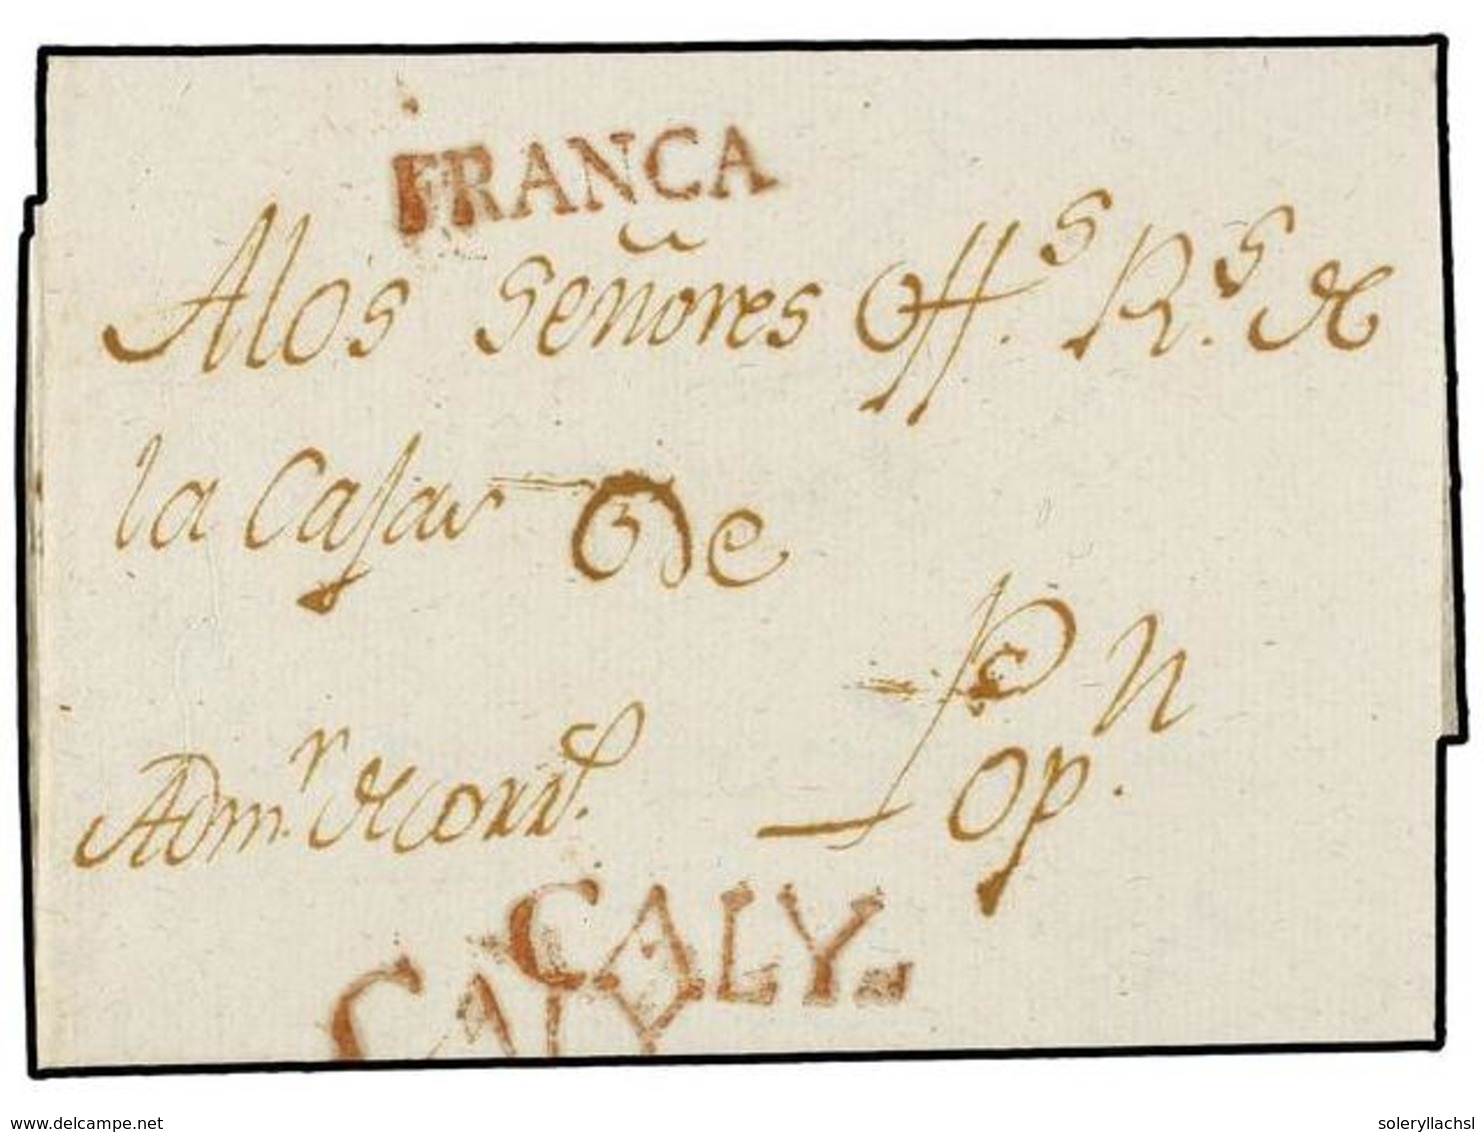 FRANCA
Alos Señores Off.s R.s de
la Cajas de
Pn
Adm.r de corr.s
Op.
CALY.
CALY
www.delcampe.net
soleryllachsl